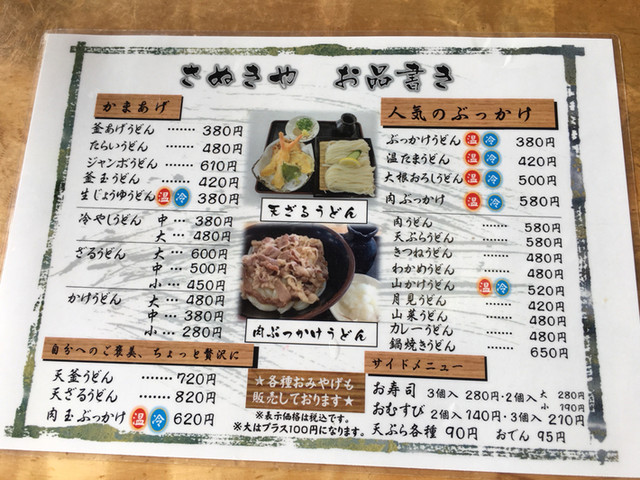 さぬきや　お品書き
かまあげ
釜あげうどん ……… 380円
たらいうどん ……… 480円
ジャンボうどん …… 610円
釜玉うどん ……… 420円
生じょうゆうどん 温 冷 380円
冷やしうどん 中… 380円
大… 480円
ざるうどん 大… 600円
中… 500円
小… 450円
かけうどん 大… 480円
中… 380円
小… 280円
自分へのご褒美、ちょっと贅沢に
天釜うどん ……… 720円
天ざるうどん ……… 820円
肉玉ぶっかけ 温 冷 620円
天ざるうどん
肉ぶっかけうどん
★各種おみやげも
販売しております★
※表示価格は税込です。
※大はプラス100円になります。
人気のぶっかけ
ぶっかけうどん 温 冷 380円
温たまうどん 温 冷 420円
大根おろしうどん 温 冷 500円
肉ぶっかけ 温 冷 580円
肉うどん ………… 580円
天ぷらうどん ……… 580円
きつねうどん ……… 480円
わかめうどん ……… 480円
山かけうどん 温 冷 520円
月見うどん ………… 420円
山菜うどん ………… 480円
カレーうどん ……… 480円
鍋焼きうどん ……… 650円
サイドメニュー
お寿司 3個入 280円・2個入 大 280円
小 190円
おむすび 2個入 140円・3個入 210円
天ぷら各種 90円 おでん 95円